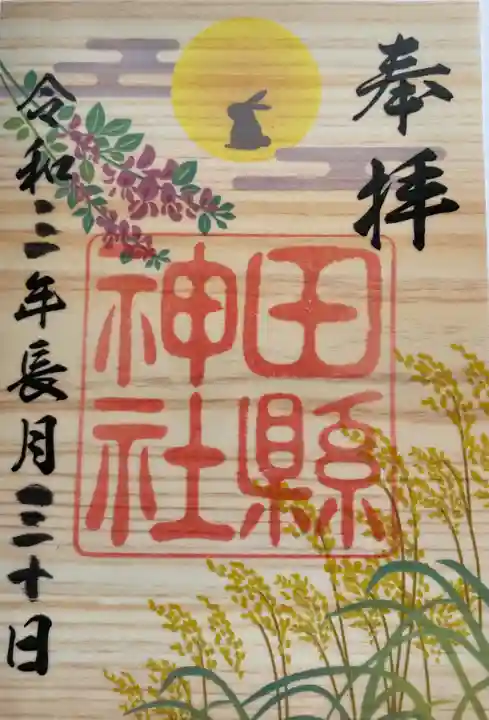 奉拝
田縣
神社
令和三年長月三十日